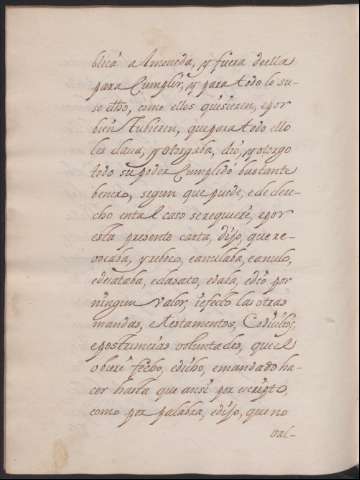 blica Almoneda, y fuera de ella
para Cumplir, y para todo lo su-
so dho, como ellos quisieren, e por
bien tubieren, que para todo ello
les daua, y otorgaba, dio, y otorgo
todo su poder Cumplido bastante
llenero, segun que puede, e de dere-
cho en tal caso se requiere, e por
esta presente carta, dijo, que re-
vocaba, y reboco, e anulaba, e anulo,
e desataba, e desato, e daba, e dio por
ningun valor, y efecto las otras
mandas, e testamentos, Codicilos,
e postrimeras voluntades, que el
obiere fecho, e dicho, e mandado ha-
cer hasta que ansi por escripto,
como por palabra, e dijo, que no
val-